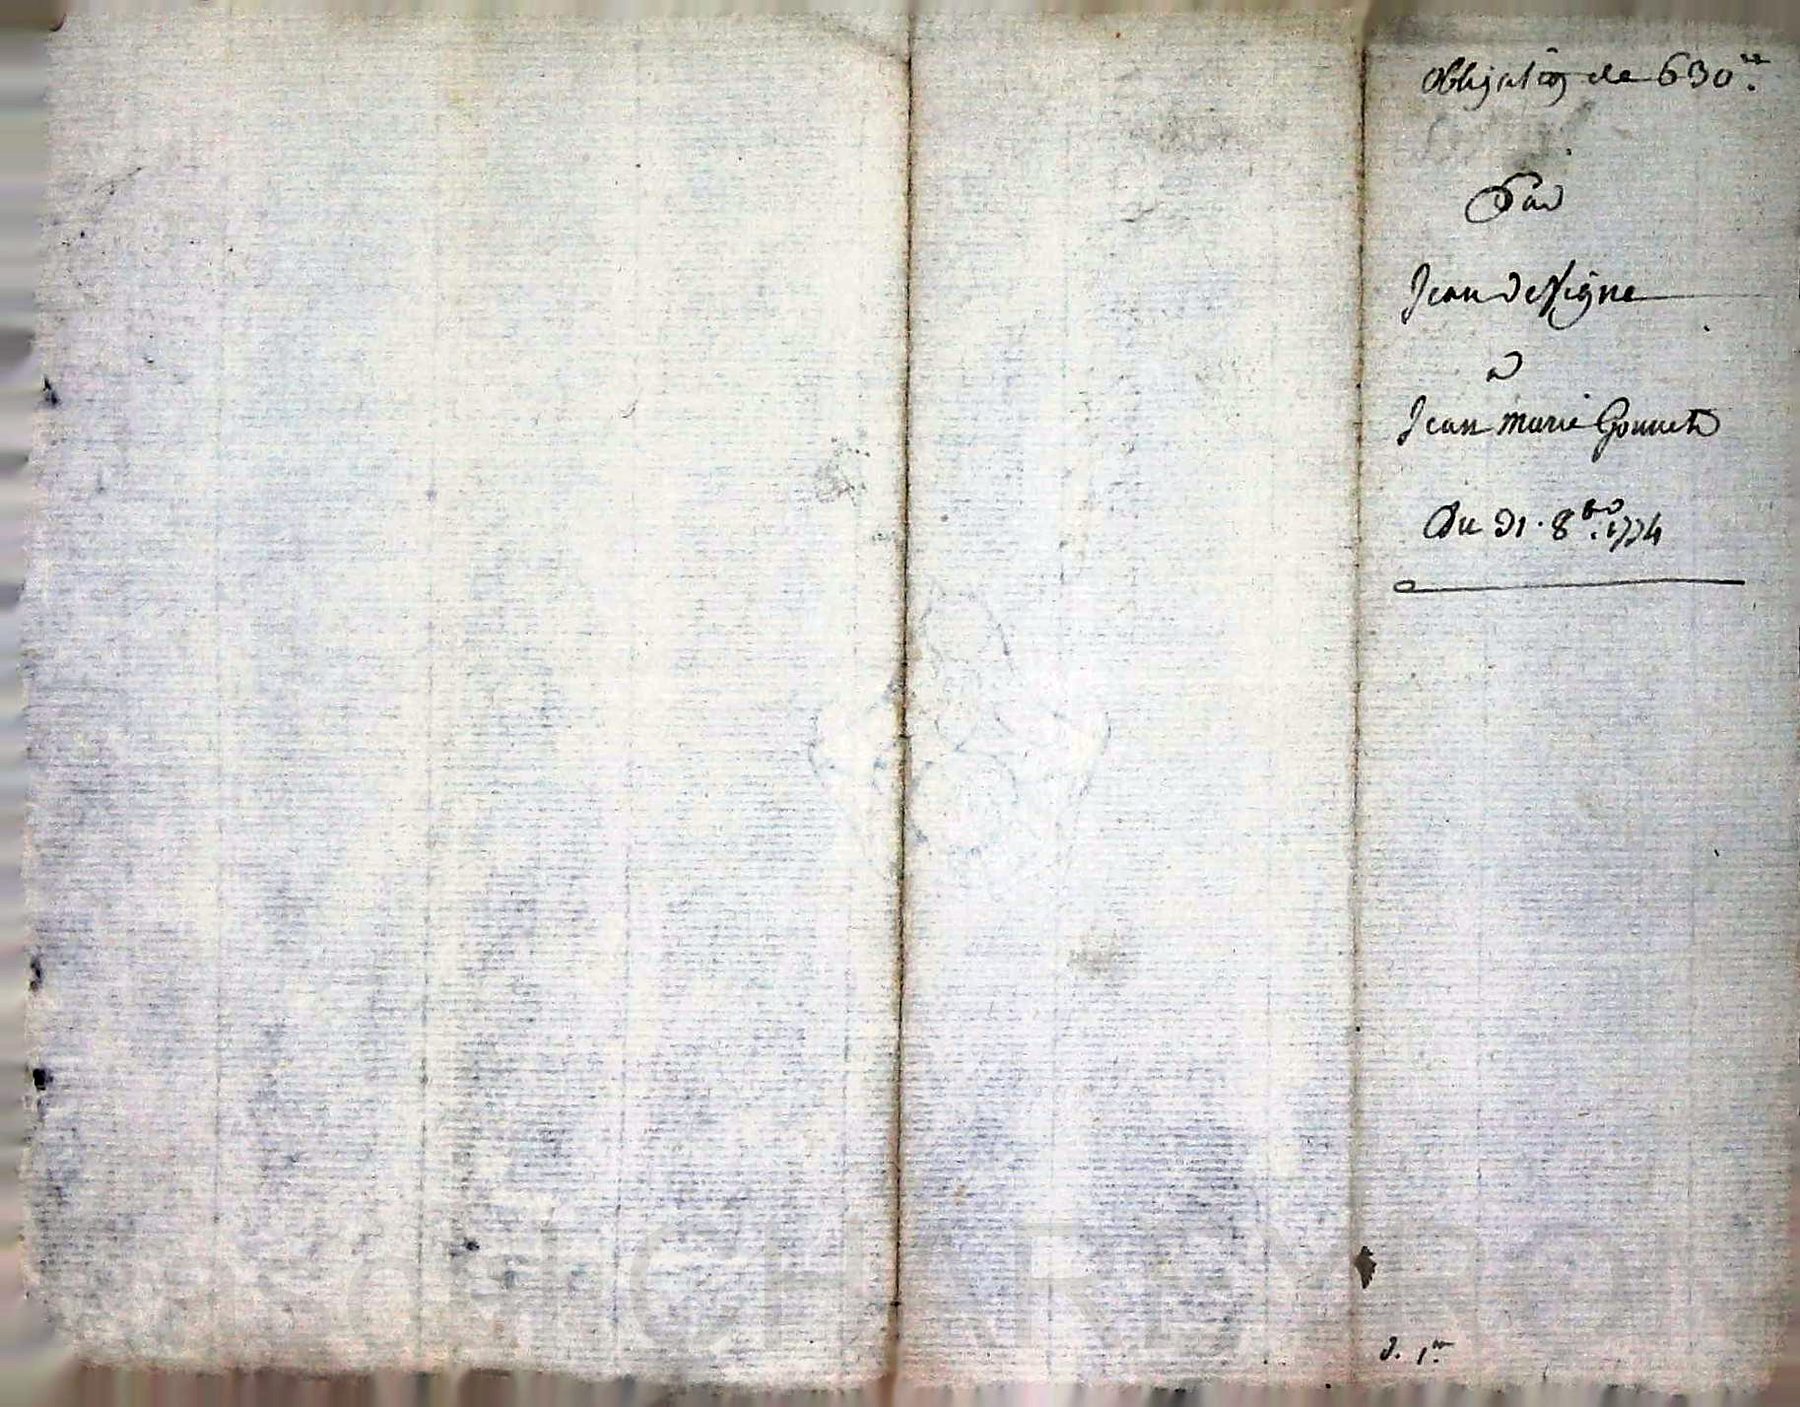 Obligaōn de 630ᵗᵗ.
Par
Jean deVigne
a
Jean marie Gonnet
Du 31. 8bre. 1774